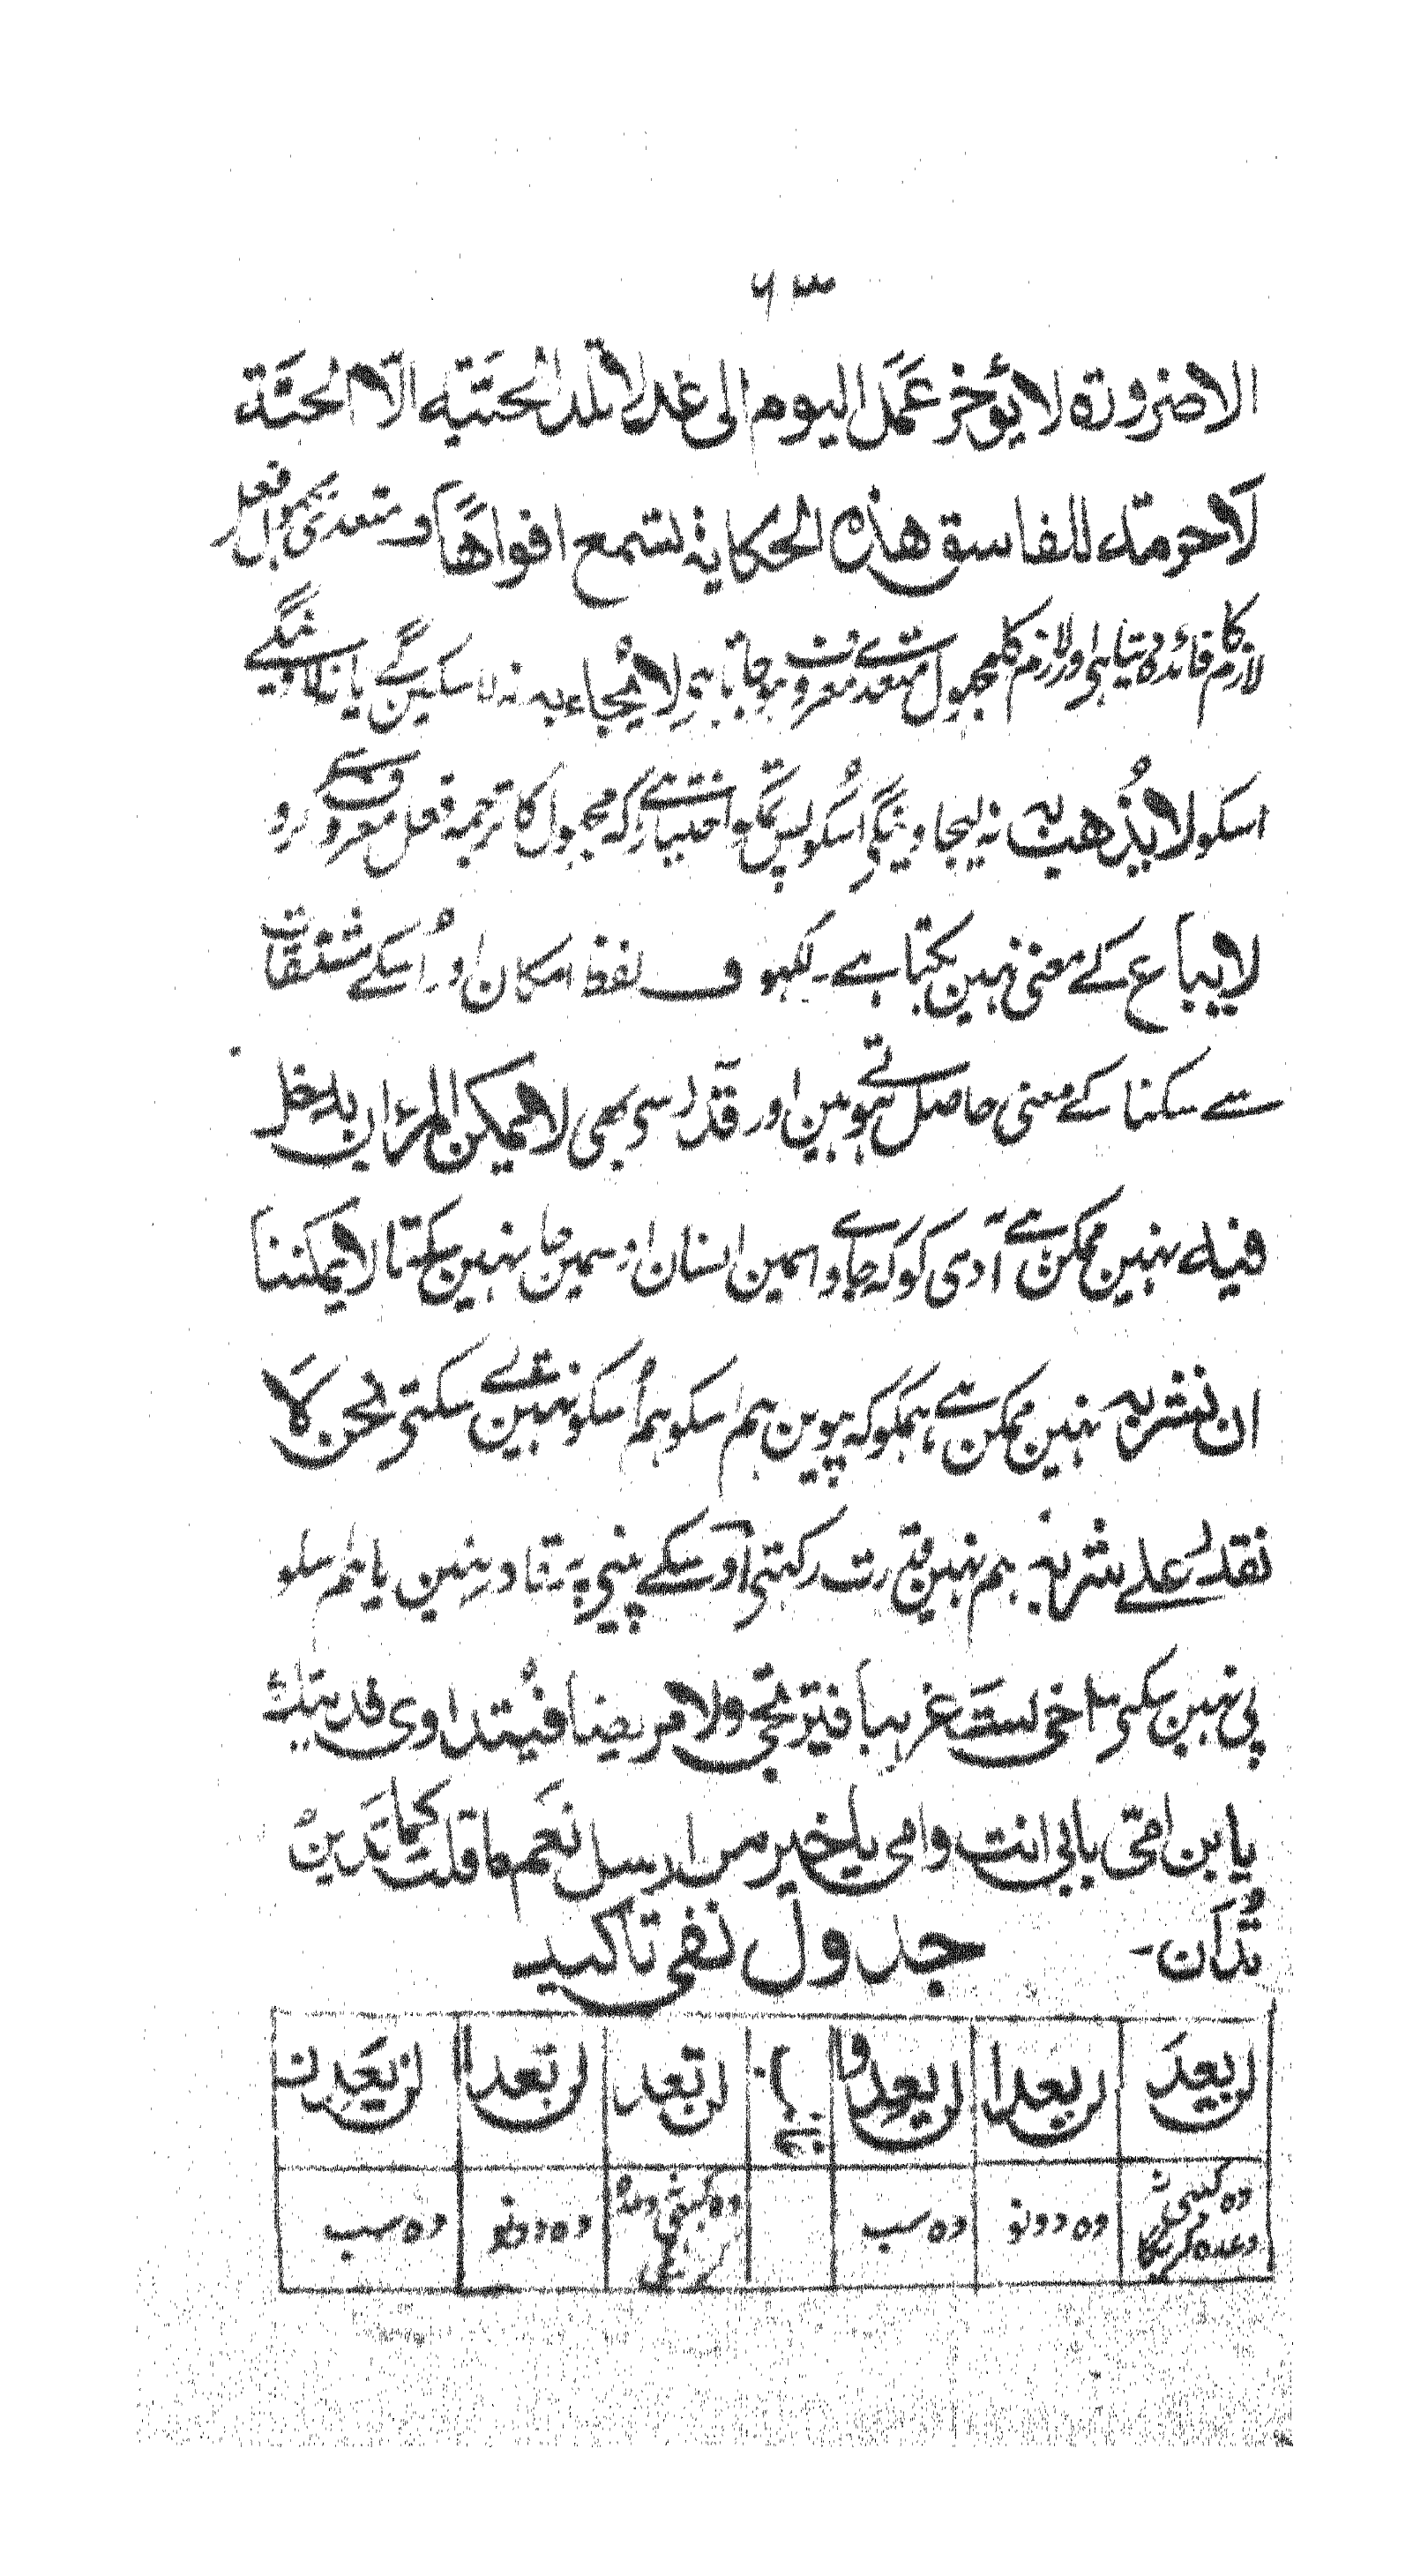 ۶۳
الاضرورة لا یؤخر عَمَل الیوم الی غد لا تلد الحَیَّة الَّا الحَیَّة
لَا حرمة للفاسق هذه الحکایة لتسمع افواهًا و متعدی مجہول فعل
لازم کا فائدہ دیتا ہی اور لازم کلمہ مجہول متعدی معروف ہو جاتا ہی لا یُجاء بہ نہ لا سکین گے یا نکا دینگے
اسکو لا یُذهب به نہ لیجا وینگی اُسکو پس تمکو اختیار ہے کہ مجہول کا ترجمہ فعل معروف سے کرو
لا یباع کے معنی نہین بکتا ہے۔ لکہو ف لفظ امکان اور اُسکے مشتقات
سے سکنا کے معنی حاصل ہوتے ہین اور قدر سی بھی لا یمکن المرءان یدخل
فیه نہین ممکن ہے آدمی کو کہ جاوے اسمین انسان اسمین جا نہین سکتا لا یمکننا
ان نشربه نہین ممکن ہے ہمکو کہ پیوین ہم اسکو ہم اُسکو نہین پی سکتی نحن لَا
نقدر علے شربه ہم نہین قدرت رکہتی اوسکے پینی پر یا ہم اسکو
پی نہین سکتی یا اخی لستَ غریبا فتیرتجی ولا مریضا فیُتداوی فدیتك
یا بن امتی بابی انت وامی یا خیر من ارسل نَعَم ما قلت کما تَدین
تُدَان۔
جدول نفی تاکید
لن یعدَ | لن یعدا | لن یعدوا | | لن تعد | لن تعدا | لن یَعِدن
وہ کبہی نہ وعدہ کریگا | وہ دونو | وہ سب | | وہ کبہی نہ وعدہ کریگی | وہ دونو | وہ سب